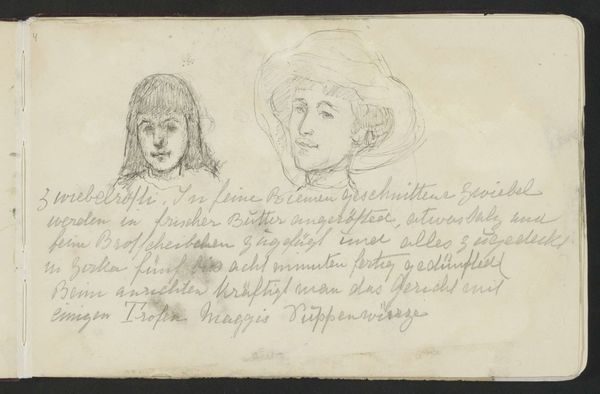 Zwiebelrösti. In feine Riemen geschnittene Zwiebel
werden in frischer Butter angerösted, etwas Salz und
feine Brotscheibchen zugefügt und alles zugedeckt
in zirka fünf bis acht minuten fertig gedünsted
Beim anrichten kräftigt man das Gericht mit
einigen Trofen Maggis Suppenwürze